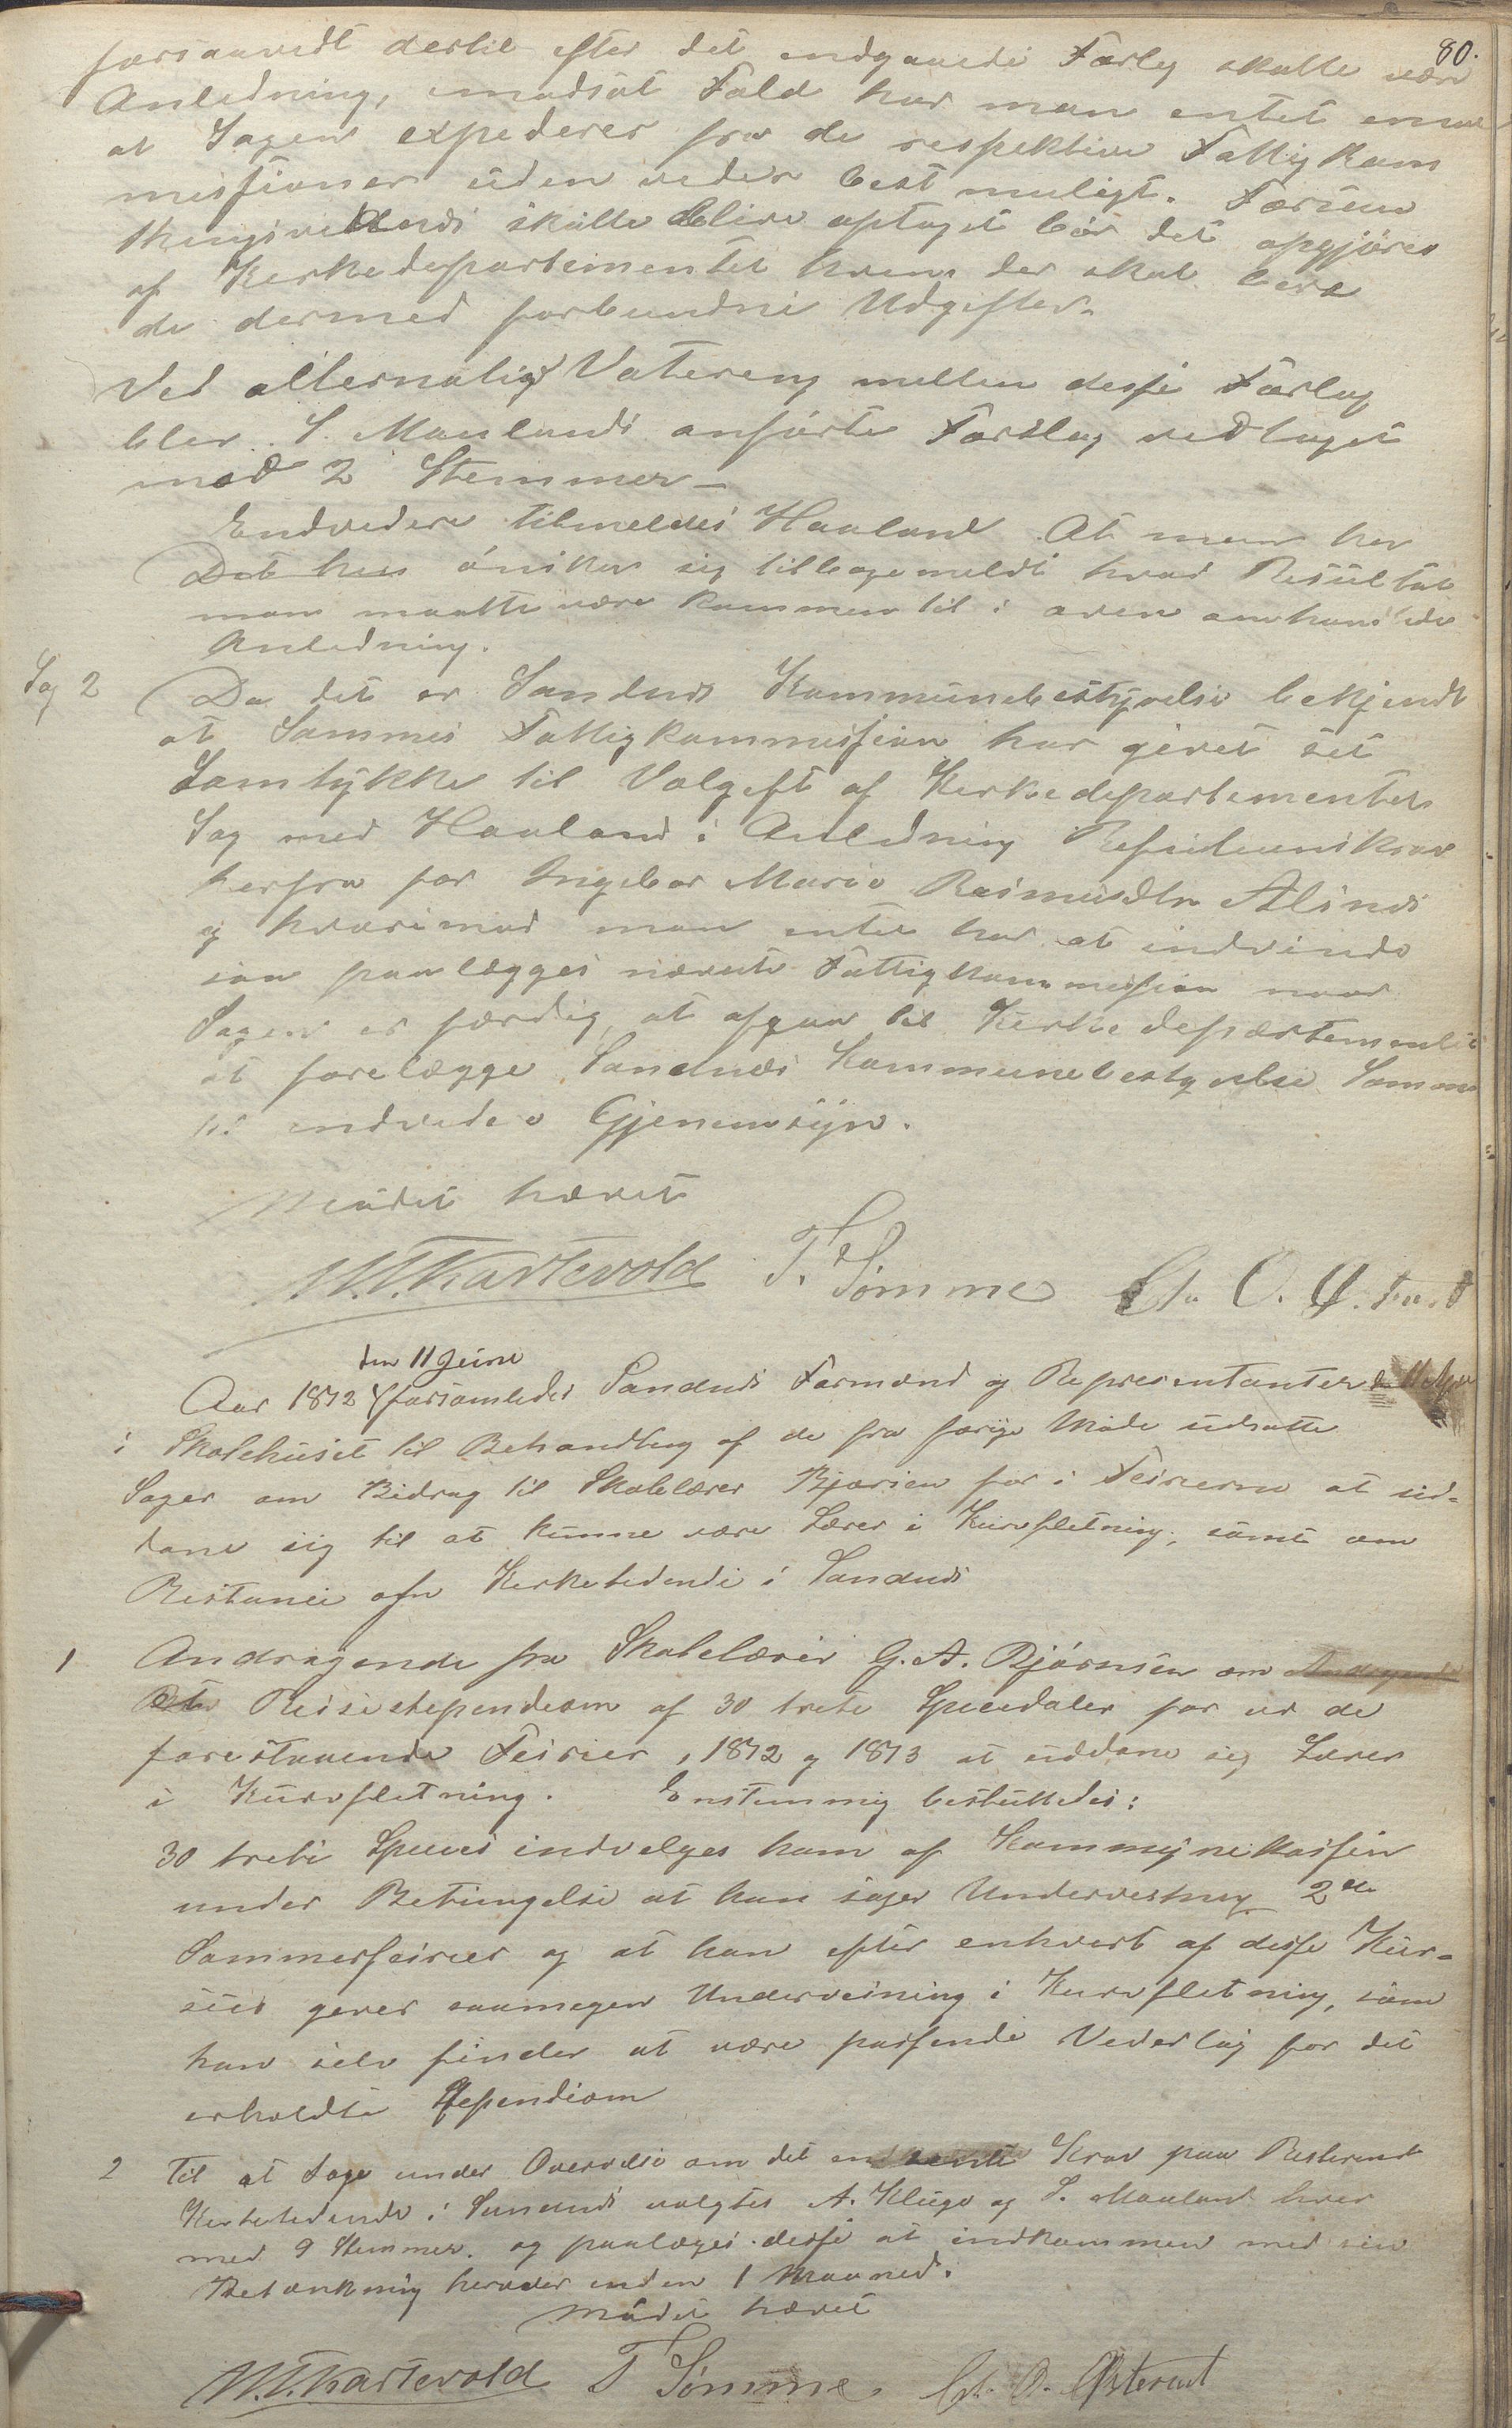 80.
forsaavidt dertil efter det indgaaede Forlig skulle være
Anledning, i modsat Fald har man entet imod
at Sagen expederes fra de respektive Fattigkom
missioner uden videre best muligt. Forsaa
skulde blive optaget bør det afgjøres
af Kirkedepartementet hvem der skal bære
de dermed forbundne Udgifter.
Ved alternativ Votering mellem disse Forslag
blev S. Maulands anførte Forslag vedtaget
med 2 Stemmer –
Endvidere tilmeldes Haaland At man her
Det her ønsker sig tilbagemeldt hvad Resultat
man maatte være kommen til i oven omhandlede
Anledning.
Sag 2 Da det er Sandnes Kommunebestyrelse bekjendt
at Sammes Fattigkommission har givet sit
Samtykke til Valgeft af Kirkedepartementet
Sag med Haaland i Anledning Refusionskrav
herfra for Ingebor Marie Rasmusdtr Alsnes
og hvorimod man intet har at indvinde
saa paalægges nævnte Fattigkommission naar
Sagen er færdig, at afgaa til Kirkedepartementet
at forelægge Sandnes Kommunebestyrelse Samme
til endvidere Gjennemsyn.
Mødet hævet
M. T. Kartevold T. Sømme Ch. O. Østervit
den 11 Juni
Aar 1872 forsamledes Sandnes Formænd og Representanter
i Skolehuset til Behandling af de fra forige Møde udsatte
Sager om Bidrag til Skolelærer Bjørnsen for i Feirierne at ud-
dane sig til at kunne være Lærer i Kurvfletning, samt om
Restance af Kirketiende i Sandnes
1 Andragende fra Skolelærer G. A. Bjørnsen om
Reisestipendium af 30 treti Speciedaler for ved de
forestaaende Feirier, 1872 og 1873 at uddane sig Lærer
i Kurvfletning. Enstemmig besluttedes:
30 treti Species indvilges ham af Kommunekassen
under Betingelse at han søger Undervisning 2de
Sommerfeirier og at han efter enhvert af disse Kur-
sus giver saamegen Underviisning i Kurvfletning, som
han selv finder at være passende Vederlag for det
erholdte Stipendium
2 Til at tage under Overveielse om det Krav paa Resterende
Kirketiende i Sandnes valgtes A. Kluge og S. Mauland hver
med 9 Stemmer. og paalægges disse at indkommen med sin
Betænkning herover inden 1 Maaned.
Mødet hævet
M. T. Kartevold T Sømme. Ch. O. Østervit